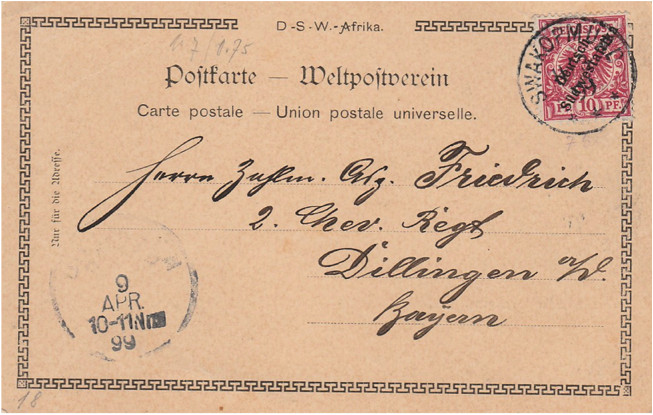 D.-S.-W.-Afrika.
17/1.75
SWAKOPMUND
10 PF.
Postkarte — Weltpostverein
Carte postale — Union postale universelle.
Nur für die Adresse.
Herrn Zahlm. Asp. Friedrich
2. Chev. Regt
Dillingen a/D.
Bayern
9
APR.
10-11N
99
18